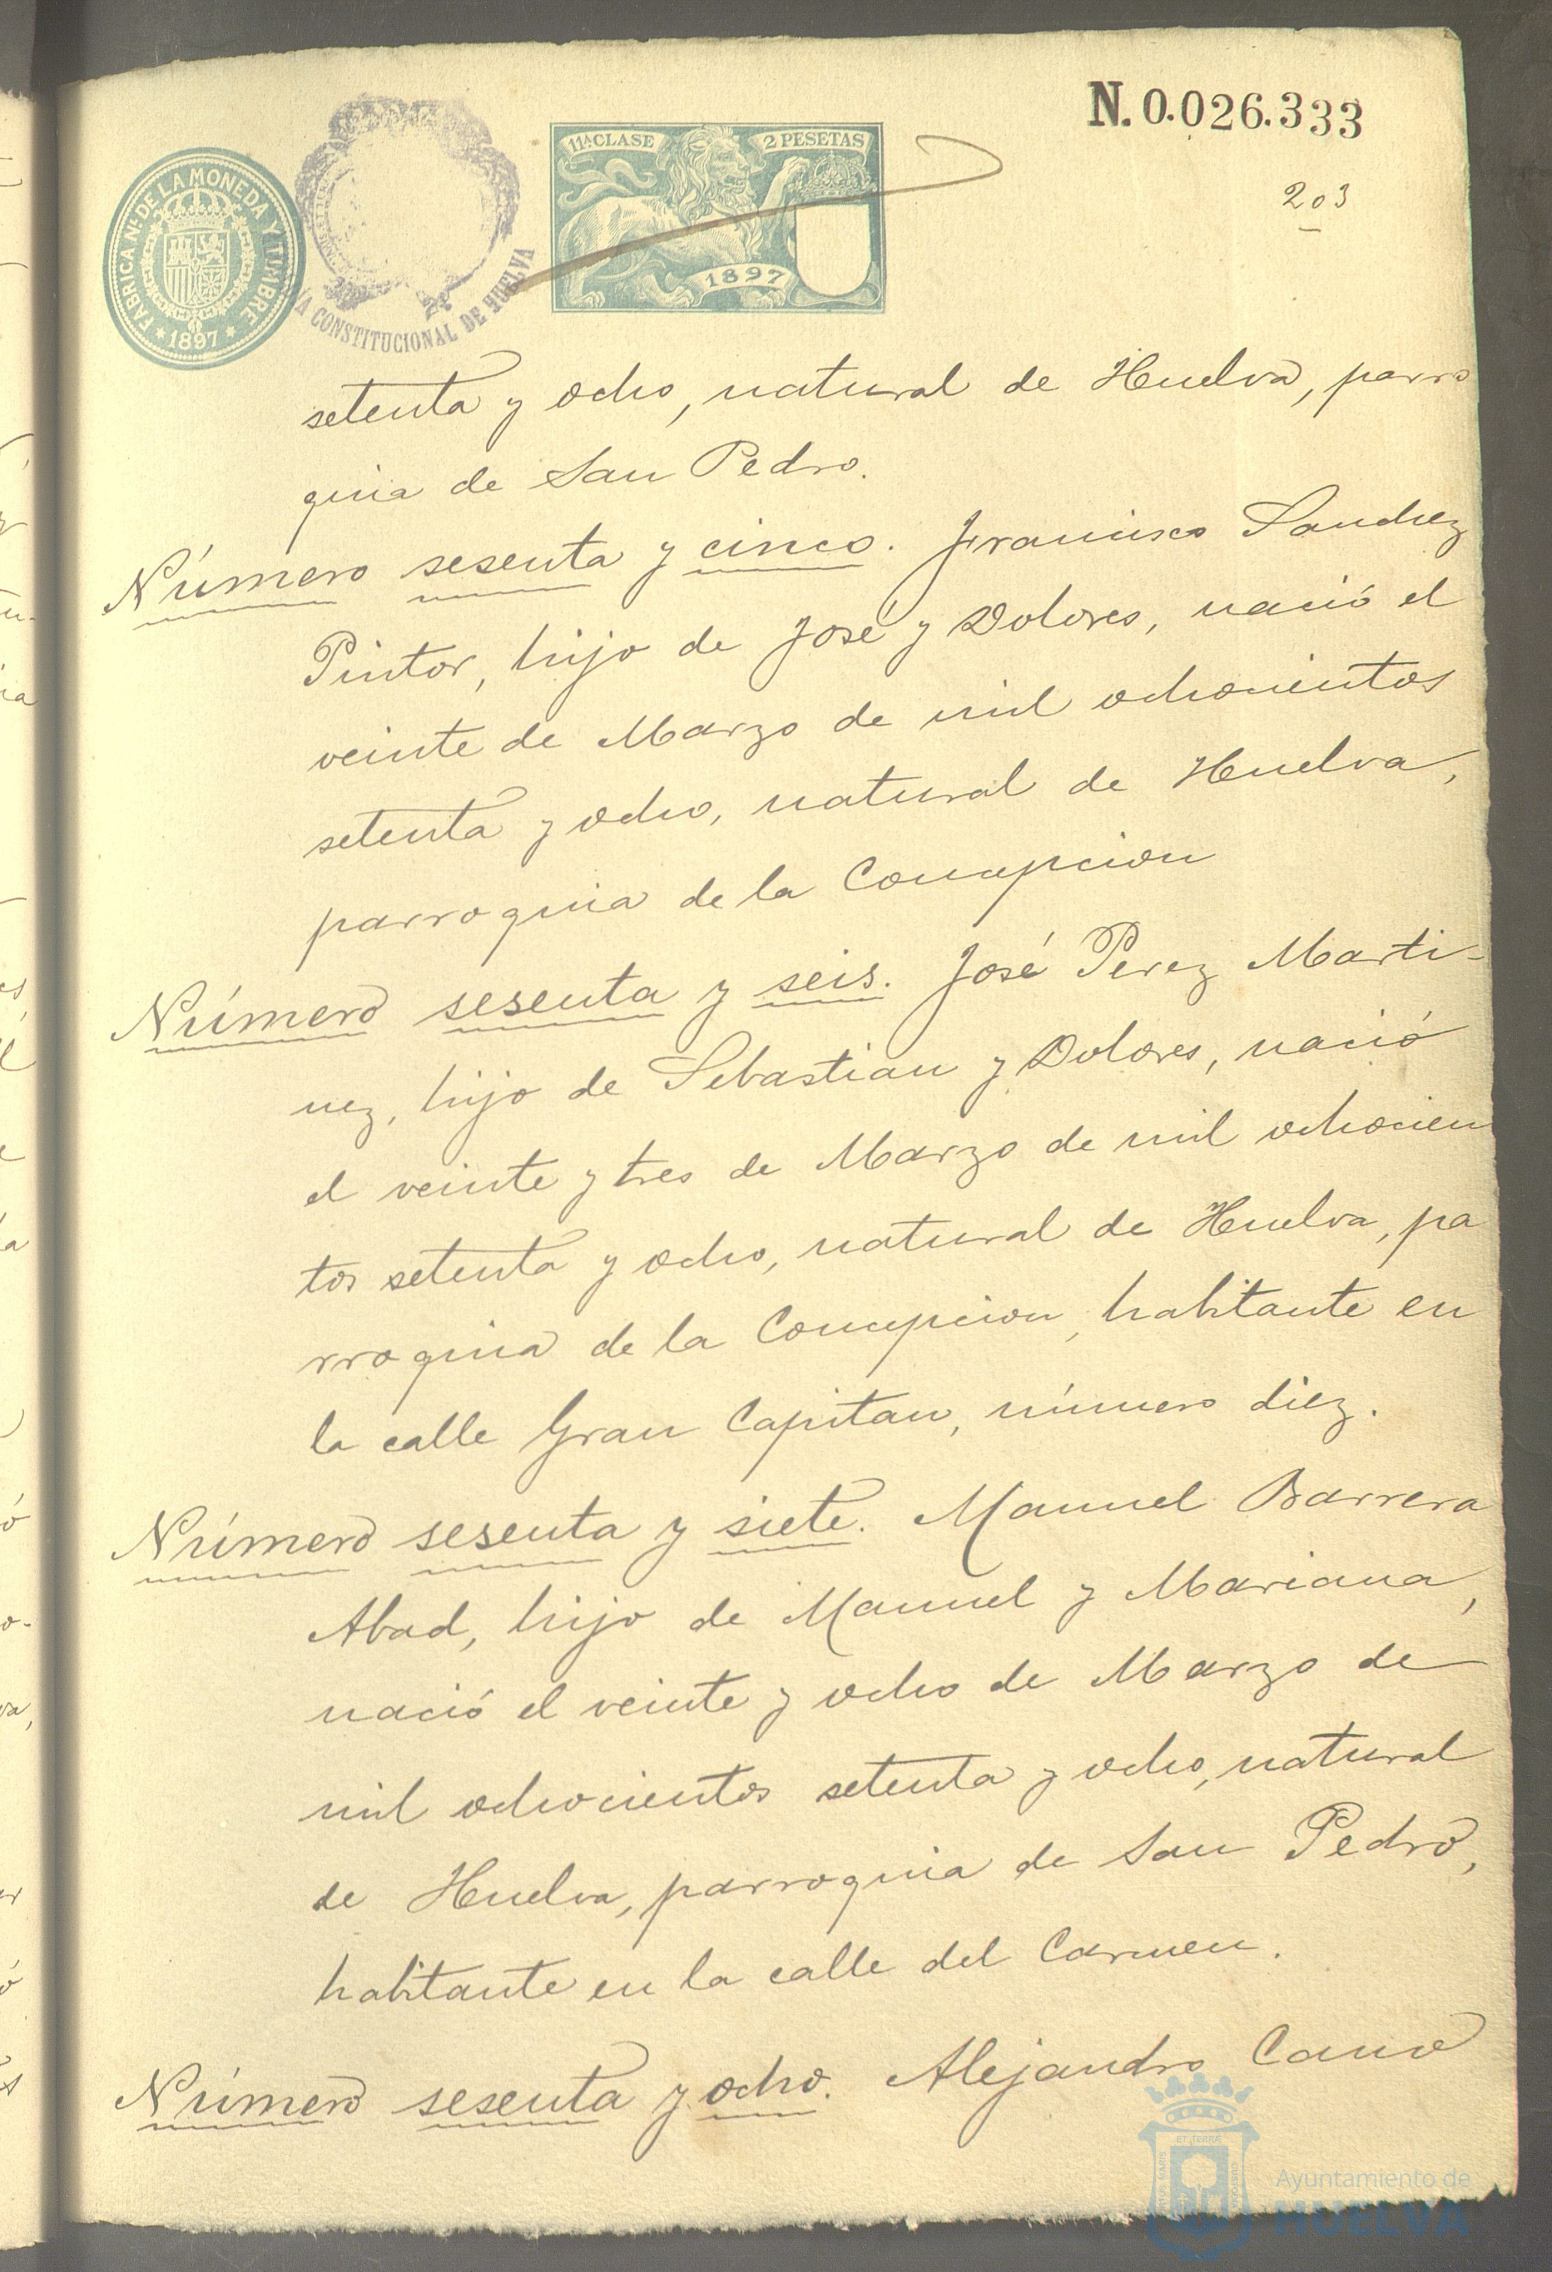 N. 0.026.333
203
11ª CLASE 2 PESETAS
1897
FABRICA Nˡ DE LA MONEDA Y TIMBRE
* 1897 *
CONSTITUCIONAL DE HUELVA
setenta y ocho, natural de Huelva, parro
quia de San Pedro.
Número sesenta y cinco. Francisco Sanchez
Pintor, hijo de José y Dolores, nació el
veinte de Marzo de mil ochocientos
setenta y ocho, natural de Huelva,
parroquia de la Concepcion
Número sesenta y seis. José Perez Marti-
nez, hijo de Sebastian y Dolores, nació
el veinte y tres de Marzo de mil ochocien
tos setenta y ocho, natural de Huelva, pa
rroquia de la Concepcion, habitante en
la calle Gran Capitan, número diez.
Número sesenta y siete. Manuel Barrera
Abad, hijo de Manuel y Mariana,
nació el veinte y ocho de Marzo de
mil ochocientos setenta y ocho, natural
de Huelva, parroquia de San Pedro,
habitante en la calle del Carmen.
Número sesenta y ocho. Alejandro Cano
Ayuntamiento de
HUELVA